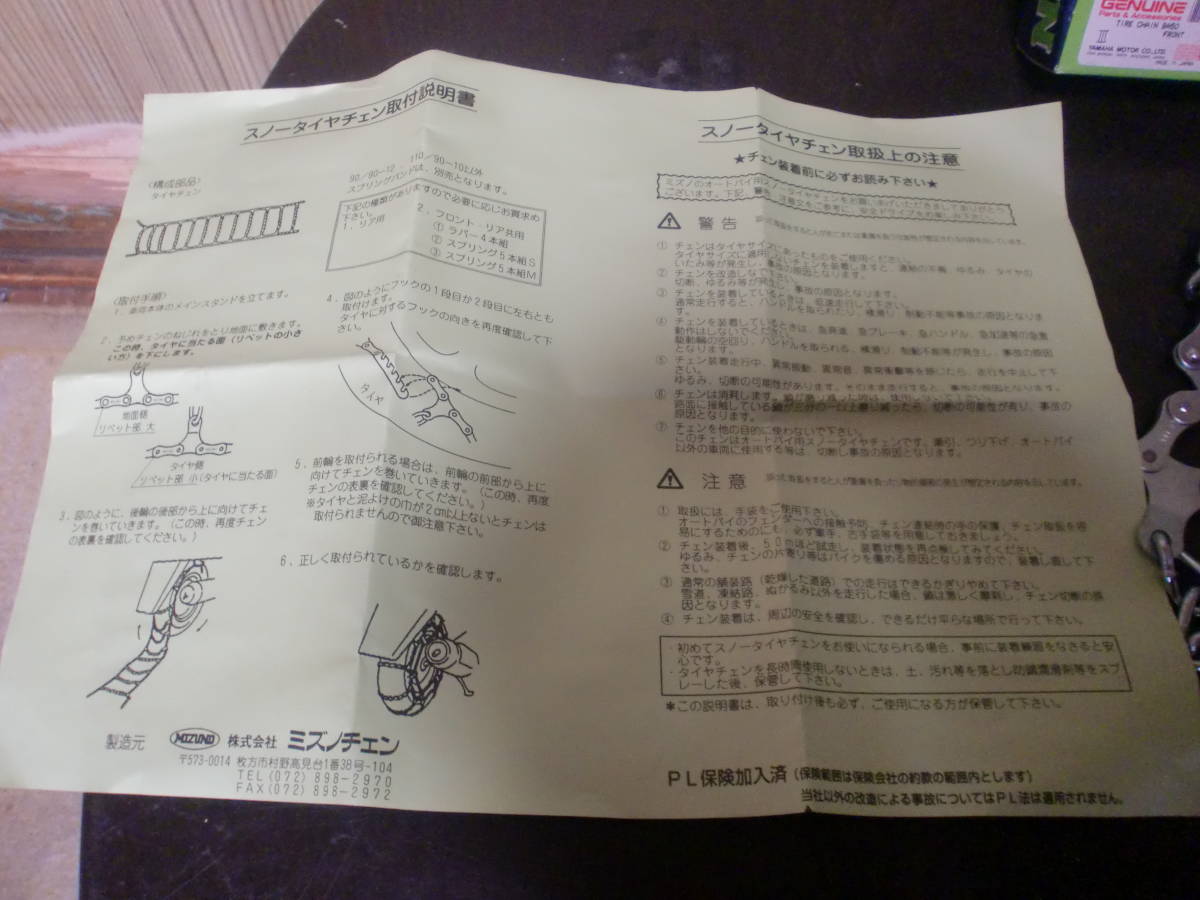 スノータイヤチェン取付説明書
〈構成部品〉
タイヤチェン
90/90-12・110/90-10以外
スプリングバンドは、別売となります。
下記の種類がありますので必要に応じお買求め
下さい。
1. リア用
2. フロント・リア共用
① ラバー4本組
② スプリング5本組S
③ スプリング5本組M
〈取付手順〉
1. 車両本体のメインスタンドを立てます。
2. 予めチェンのねじれをとり地面に敷きます。
この時、タイヤに当たる面(リベットの小さ
いち)を下にします。
地面側
リベット部 大
タイヤ側
リベット部 小(タイヤに当たる面)
3. 図のように、後輪の後部から上に向けてチェ
ンを巻いていきます。(この時、再度チェン
の表裏を確認してください。)
4. 図のようにフックの1段目か2段目に左右とも
取付けます。
タイヤに対するフックの向きを再度確認して下
さい。
タイヤ
5. 前輪を取付られる場合は、前輪の前部から上に
向けてチェンを巻いていきます。(この時、再度
チェンの表裏を確認してください。)
※タイヤと泥よけの巾が2cm以上ないとチェンは
取付られませんので御注意下さい。
6. 正しく取付られているかを確認します。
製造元 MIZUNO 株式会社 ミズノチェン
〒573-0014 枚方市村野高見台1番38号-104
TEL(072)898-2970
FAX(072)898-2972
スノータイヤチェン取扱上の注意
★チェン装着前に必ずお読み下さい★
ミズノのオートバイ用スノータイヤチェンをお買い上げいただきましてありがとう
ございます。下記、警告、注意文をご参考に、安全ドライブをお楽しみ下さい。
警告
① チェンはタイヤサイズにあったものをご使用ください。
タイヤサイズに適用しないチェンを装着しますと、連結の不備、ゆるみ、タイヤの
いたみ等が発生し、事故の原因となります。
② チェンを改造しないで下さい。
切断、ゆるみ等が発生し、事故の原因となります。
③ チェンを装着しているときは、低速走行して下さい。
通常走行すると、ハンドルを取られたり、横滑り、制動不能等事故の原因となりま
す。
④ チェンを装着しているときは、急発進、急ブレーキ、急ハンドル、急加速等の急激
動作はしないでください。
駆動輪の空回り、ハンドルを取られる、横滑り、制動不能等が発生し、事故の原因
となります。
⑤ チェン装着走行中、異常振動、異常音、異常衝撃等を感じたら、走行を中止して下
さい。
ゆるみ、切断の可能性があります。そのまま走行すると、事故の原因となります。
⑥ チェンは消耗します。鎖が磨り減った時は、使用しないで下さい。
路面に接触している鎖が三分の一以上磨り減ったら、切断の可能性が有り、事故の
原因となります。
⑦ チェンを他の目的に使わないで下さい。
このチェンはオートバイ用スノータイヤチェンです。牽引、つり下げ、オートバイ
以外の車両に使用する等は、切断し事故の原因となります。
注意
① 取扱には、手袋をご使用下さい。
オートバイのフェンダーへの接触予防、チェン連結時の手の保護、チェン取扱を容
易にするためのにも、必ず軍手、古手袋等を用意しておきましょう。
② チェン装着後、50mほど試走し、装着状態を再点検してみてください。
ゆるみ、チェンの片寄り等はバイクを傷める原因となりますので、装着し直して下
さい。
③ 通常の舗装路(乾燥した道路)での走行はできるかぎりやめて下さい。
雪道、凍結路、ぬかるみ以外を走行した場合、鎖は激しく摩耗し、チェン切断の原
因となります。
④ チェン装着は、周辺の安全を確認し、できるだけ平らな場所で行って下さい。
・初めてスノータイヤチェンをお使いになられる場合、事前に装着練習をなさると安
心です。
・タイヤチェンを長時間使用しないときは、土、汚れ等を落とし防錆潤滑剤等をスプ
レーした後、保管して下さい。
＊この説明書は、取り付け後も必ず、ご使用になる方が保管して下さい。
PL保険加入済(保険範囲は保険会社の約款の範囲内とします)
当社以外の改造による事故についてはPL法は適用されません。
GENUINE
Parts & Accessories
TIRE CHAIN 8A80
FRONT
YAMAHA MOTOR CO.,LTD.
MADE IN JAPAN